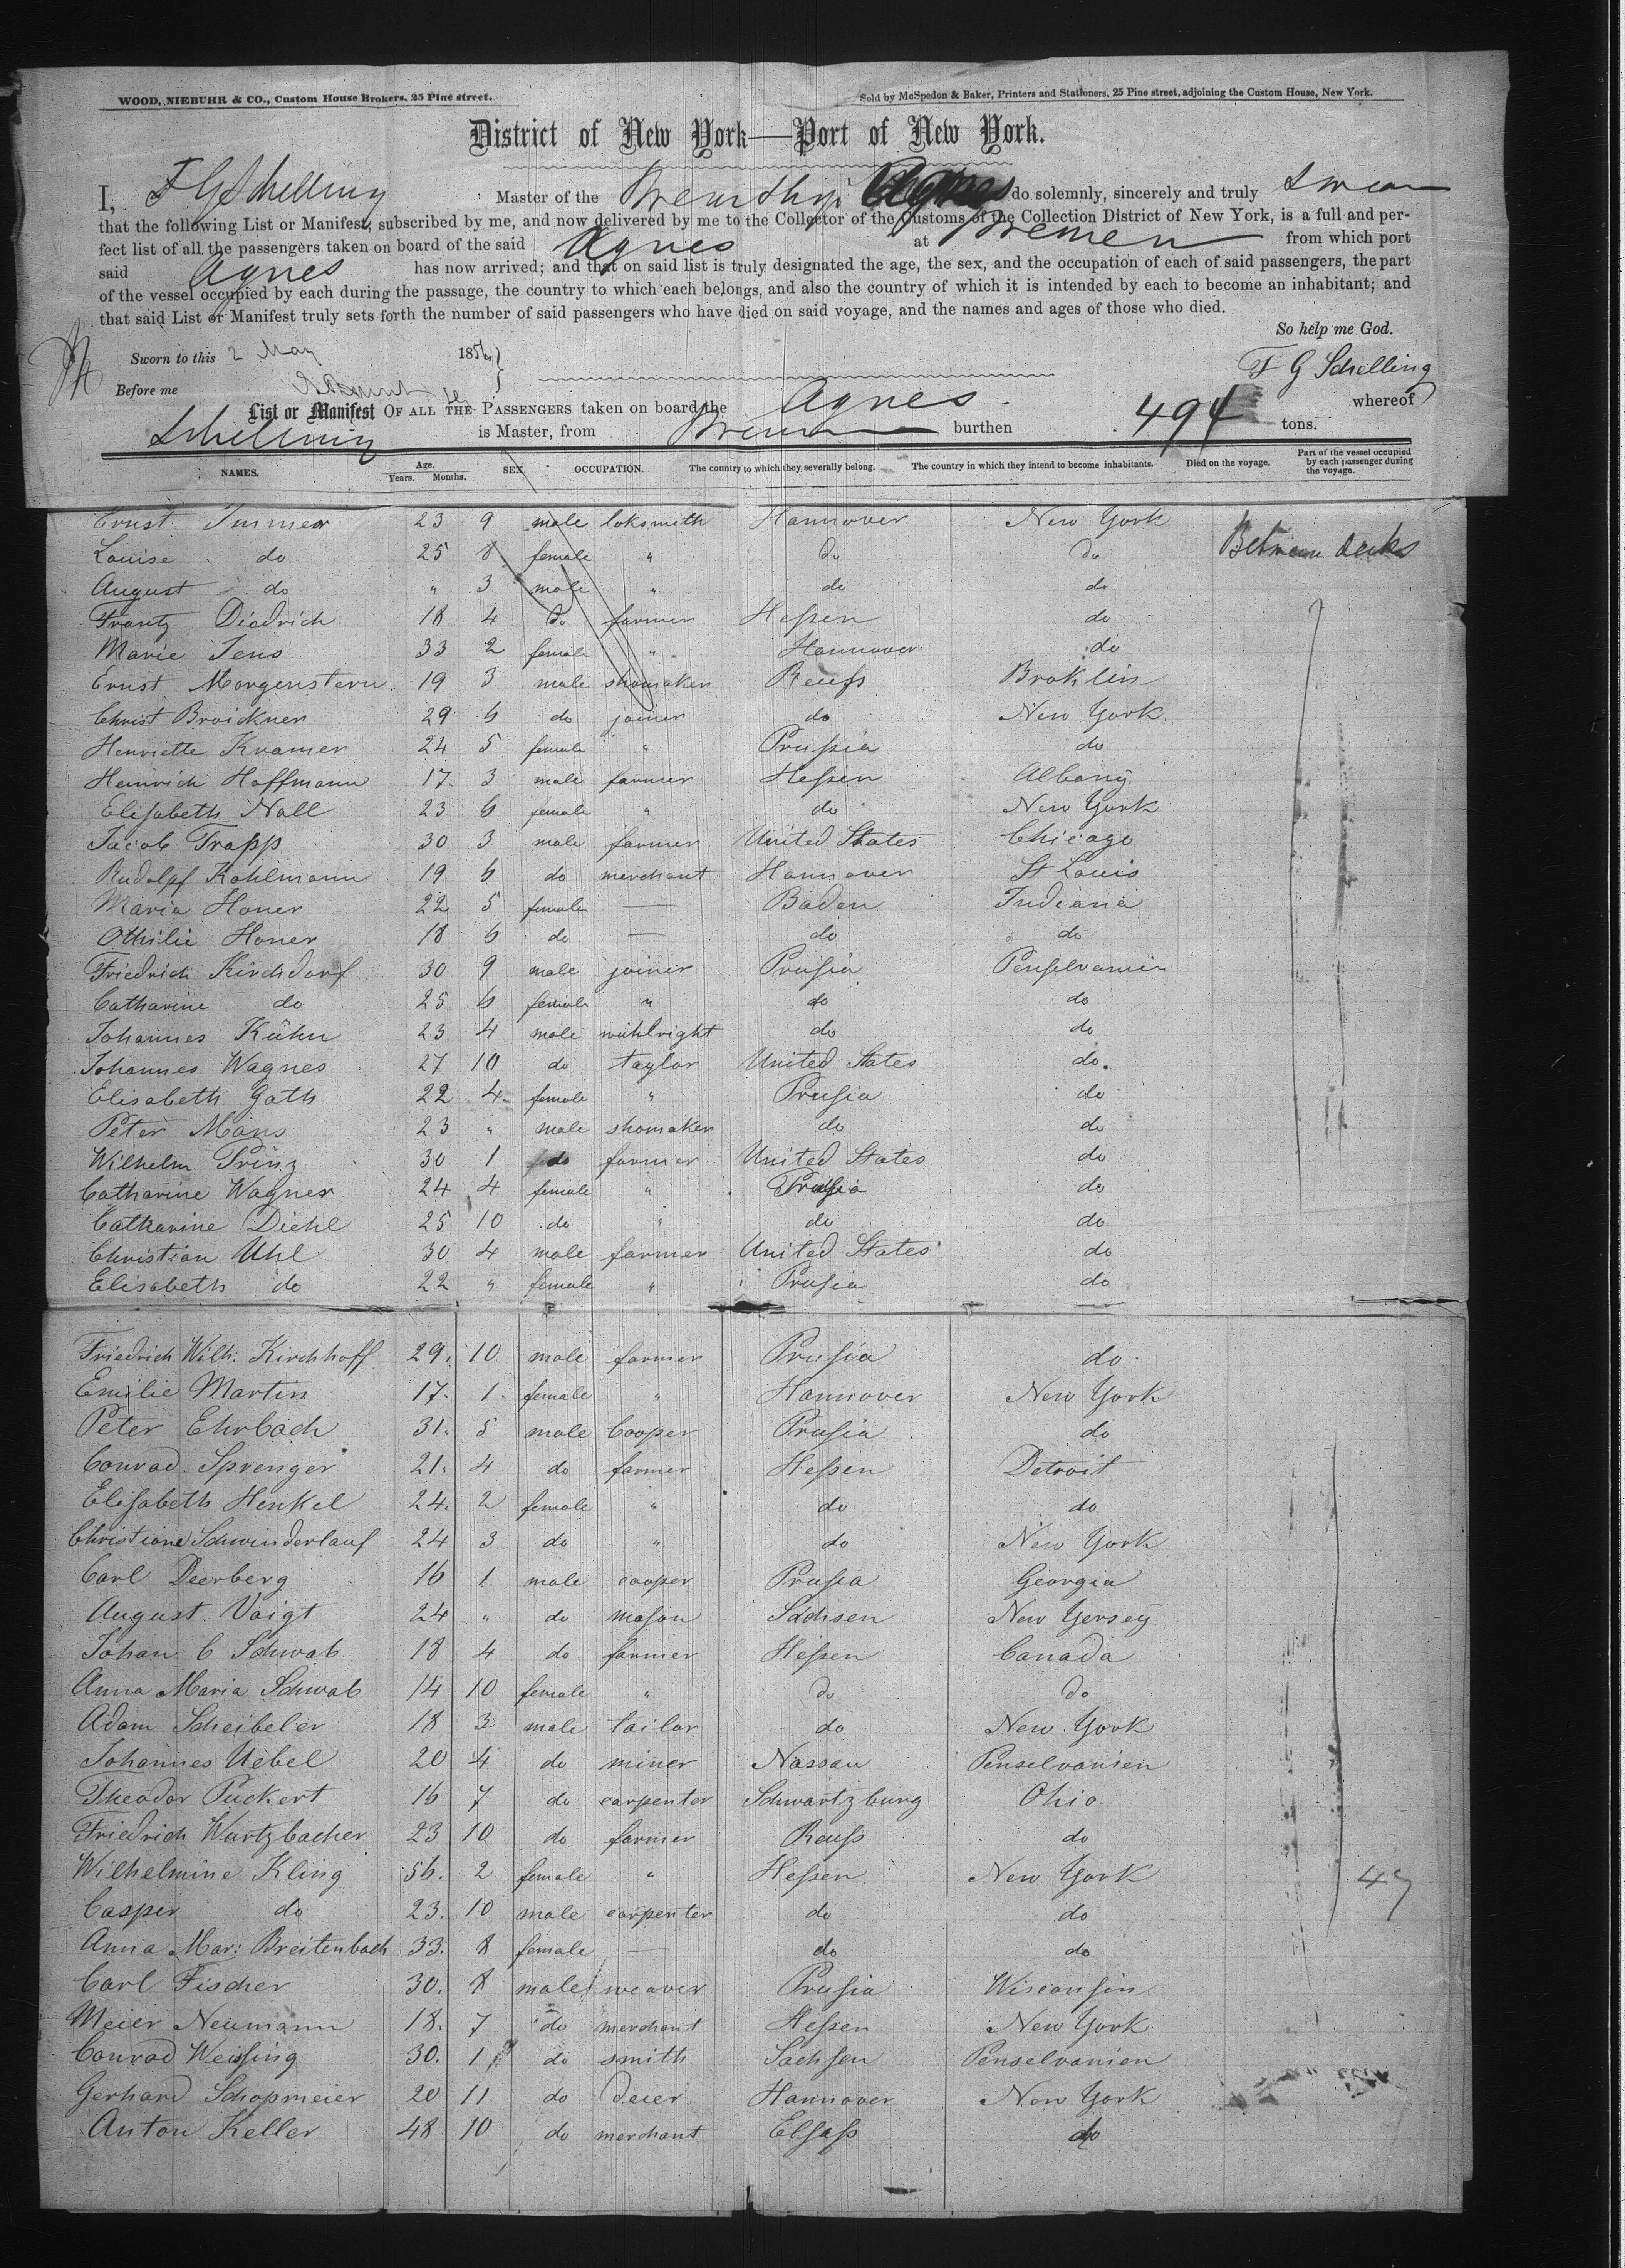 WOOD, NIEBUHR & CO., Custom House Brokers, 25 Pine street. Sold by McSpedon & Baker, Printers and Stationers, 25 Pine street, adjoining the Custom House, New York.
District of New York—Port of New York.
I, F G Schelling Master of the do solemnly, sincerely and truly swear
that the following List or Manifest, subscribed by me, and now delivered by me to the Collector of the Customs of the Collection District of New York, is a full and per-
fect list of all the passengers taken on board of the said Agnes at Bremen from which port
said Agnes has now arrived; and that on said list is truly designated the age, the sex, and the occupation of each of said passengers, the part
of the vessel occupied by each during the passage, the country to which each belongs, and also the country of which it is intended by each to become an inhabitant; and
that said List or Manifest truly sets forth the number of said passengers who have died on said voyage, and the names and ages of those who died.
So help me God.
Sworn to this 2 May 1856
F G Schelling
Before me
List or Manifest OF ALL THE PASSENGERS taken on board the Agnes whereof
Schelling is Master, from Bremen burthen 494 tons.
NAMES. Age. Years. Months. SEX. OCCUPATION. The country to which they severally belong. The country in which they intend to become inhabitants. Died on the voyage. Part of the vessel occupied by each passenger during the voyage.
Ernst 23 9 male loksmith Hannover New York Between decks
Louise do 25 8 female " do do
August do " 3 male " do do
Frantz Diedrich 18 4 do farmer Heßen do
Marie Jens 33 2 female " Hannover do
Ernst Morgenstern 19 3 male shomaker Reuß Broklin
Christ Broickner 29 6 do joiner do New York
Henriette Kramer 24 5 female " Prußia do
Heinrich Hoffmann 17 3 male farmer Heßen Albany
Elisabeth Nall 23 6 female " do New York
Jacob Trapp 30 3 male farmer United States Chicago
Rudolpf Kohlmann 19 6 do merchant Hannover St Louis
Maria Honer 22 5 female — Baden Indiana
Othilie Honer 18 6 do — do do
Friedrich Kirchdorf 30 9 male joiner Prusia Penselvanien
Catharine do 25 6 female " do do
Johannes Kühn 23 4 male wühlright do do
Johannes Wagnes 27 10 do taylor United States do.
Elisabeth Gath 22 4 female " Prusia do
Peter Mans 23 " male shomaker do do
Wilhelm Prinz 30 1 do farmer United States do
Catharine Wagner 24 4 female " Prusia do
Catharine Diehl 25 10 do " do do
Christian Uhl 30 4 male farmer United States do
Elisabeth do 22 " female " Prusia do
Friedrich Wilh: Kirchhoff 29. 10 male farmer Prusia do
Emilie Martin 17. 1 female " Hannover New York
Peter Ehrbach 31. 5 male Cooper Prusia do
Conrad Sprenger 21. 4 do farmer Heßen Detroit
Elisabeth Henkel 24. 2 female " do do
Christiane Schwinderlauf 24 3 do " do New York
Carl Deerberg 16 1 male cooper Prusia Georgia
August Voigt 24 " do mason Sachsen New Yersey
Johan C Schwab 18 4 do farmer Heßen Canada
Anna Maria Schwab 14 10 female " do do
Adam Scheibeler 18 3 male tailor do New York
Johannes Uebel 20 4 do miner Nassau Penselvanien
Theodor Puckert 16 7 do carpenter Schwartzburg Ohio
Friedrich Wurtzbacher 23 10 do farmer Reuß do
Wilhelmine Kling 56. 2 female " Heßen New York 47
Casper do 23. 10 male carpenter do do
Anna Mar: Breitenbach 33. 8 female — do do
Carl Fischer 30. 8 male weaver Prusia Wisconsin
Meier Neumann 18. 7 do merchant Heßen New York
Conrad Weißing 30. 1 do smith Sachsen Penselvanien
Gerhard Schopmeier 20 11 do deier Hannover New York
Anton Keller 48 10 do merchant Elsaß do